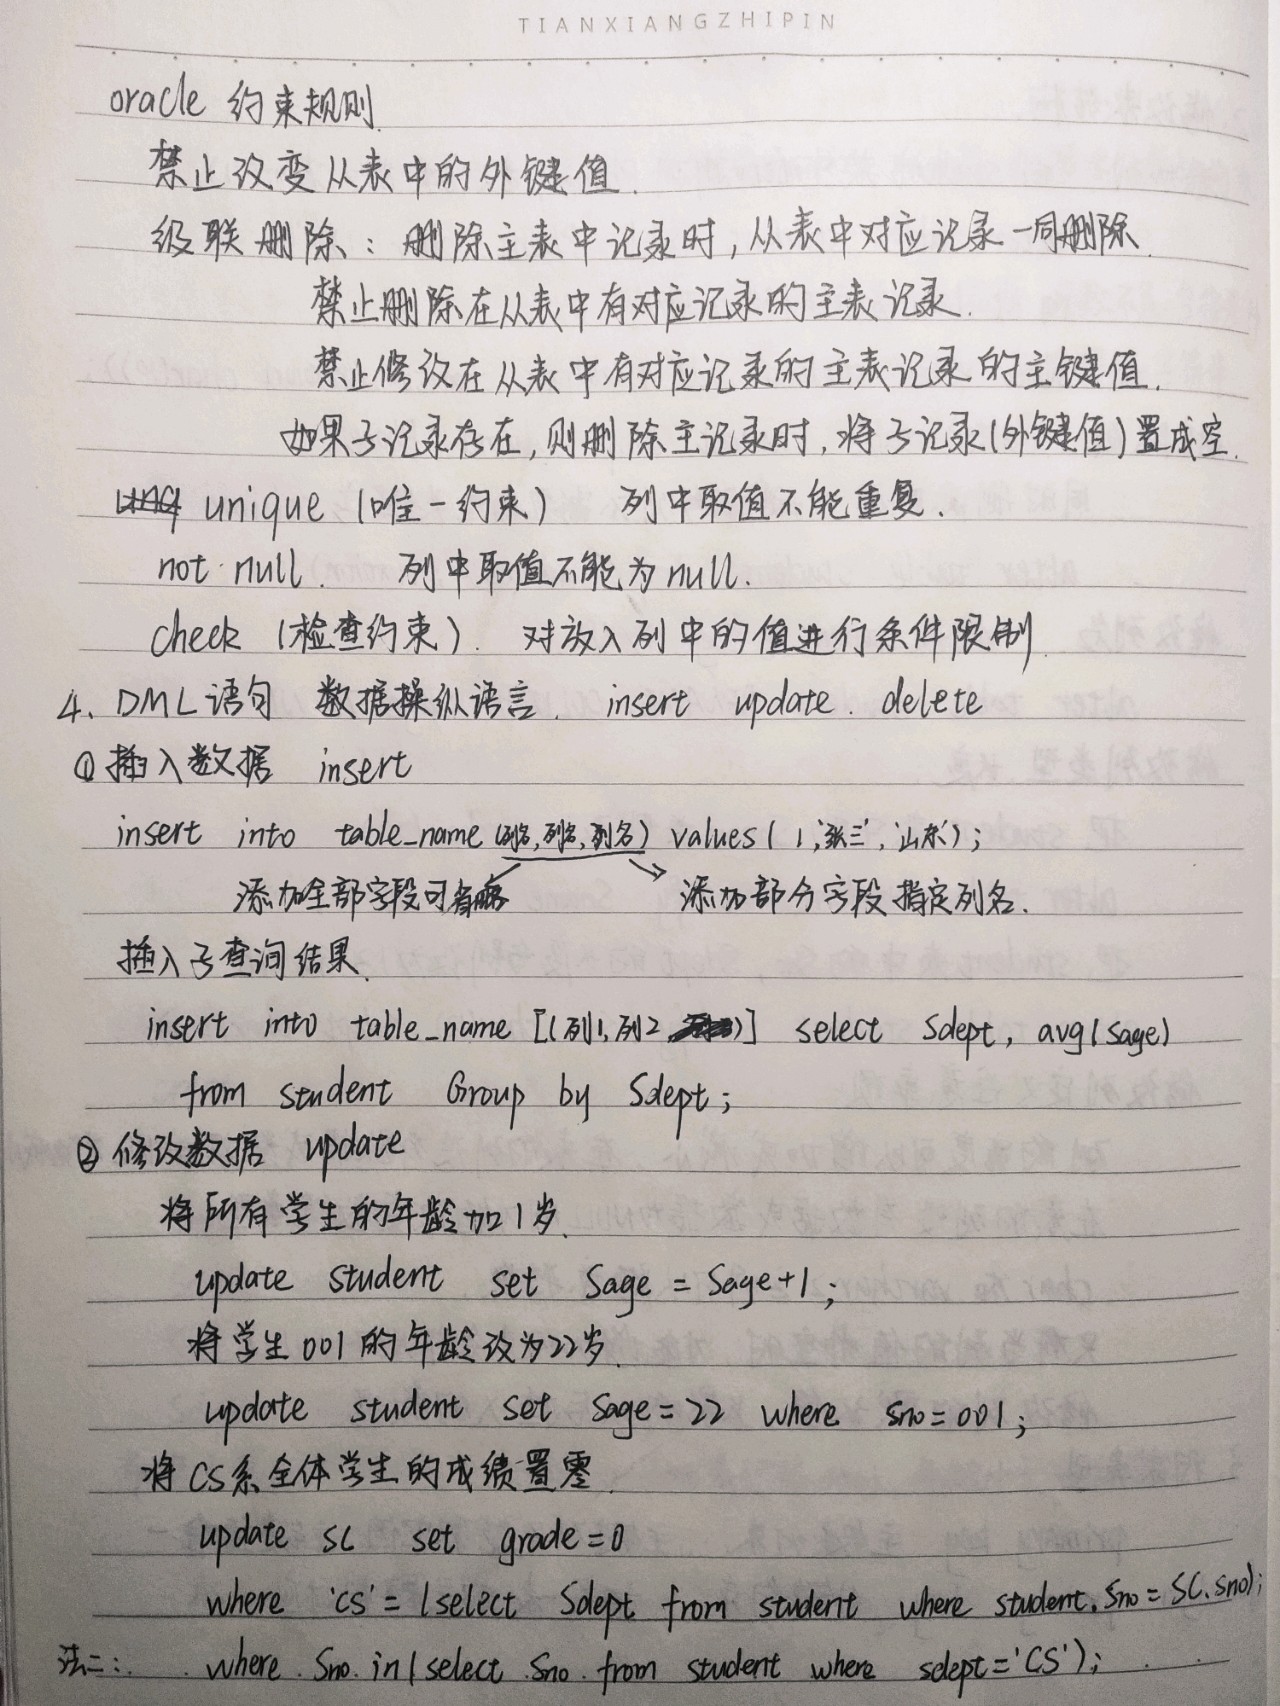 TIANXIANGZHIPIN
oracle 约束规则.
禁止改变从表中的外键值.
级联删除: 删除主表中记录时,从表中对应记录一同删除.
禁止删除在从表中有对应记录的主表记录.
禁止修改在从表中有对应记录的主表记录的主键值.
如果子记录存在,则删除主记录时,将子记录(外键值)置成空.
unique (唯一约束) 列中取值不能重复.
not null 列中取值不能为null.
check (检查约束). 对放入列中的值进行条件限制.
4、DML语句 数据操纵语言. insert update. delete
① 插入数据 insert
insert into table_name (列名,列名,列名) values( 1,'张三','山东');
添加全部字段可省略 添加部分字段指定列名.
插入子查询结果.
insert into table_name [(列1,列2 )] select Sdept, avg(Sage)
from student Group by Sdept;
② 修改数据 update
将所有学生的年龄加1岁.
update student set Sage = Sage+1;
将学生001的年龄改为22岁.
update student set Sage=22 where Sno=001;
将CS系全体学生的成绩置零.
update SC set grade=0
where 'CS'=(select Sdept from student where student.Sno=SC.Sno);
法二: where Sno in(select Sno from student where sdept='CS');